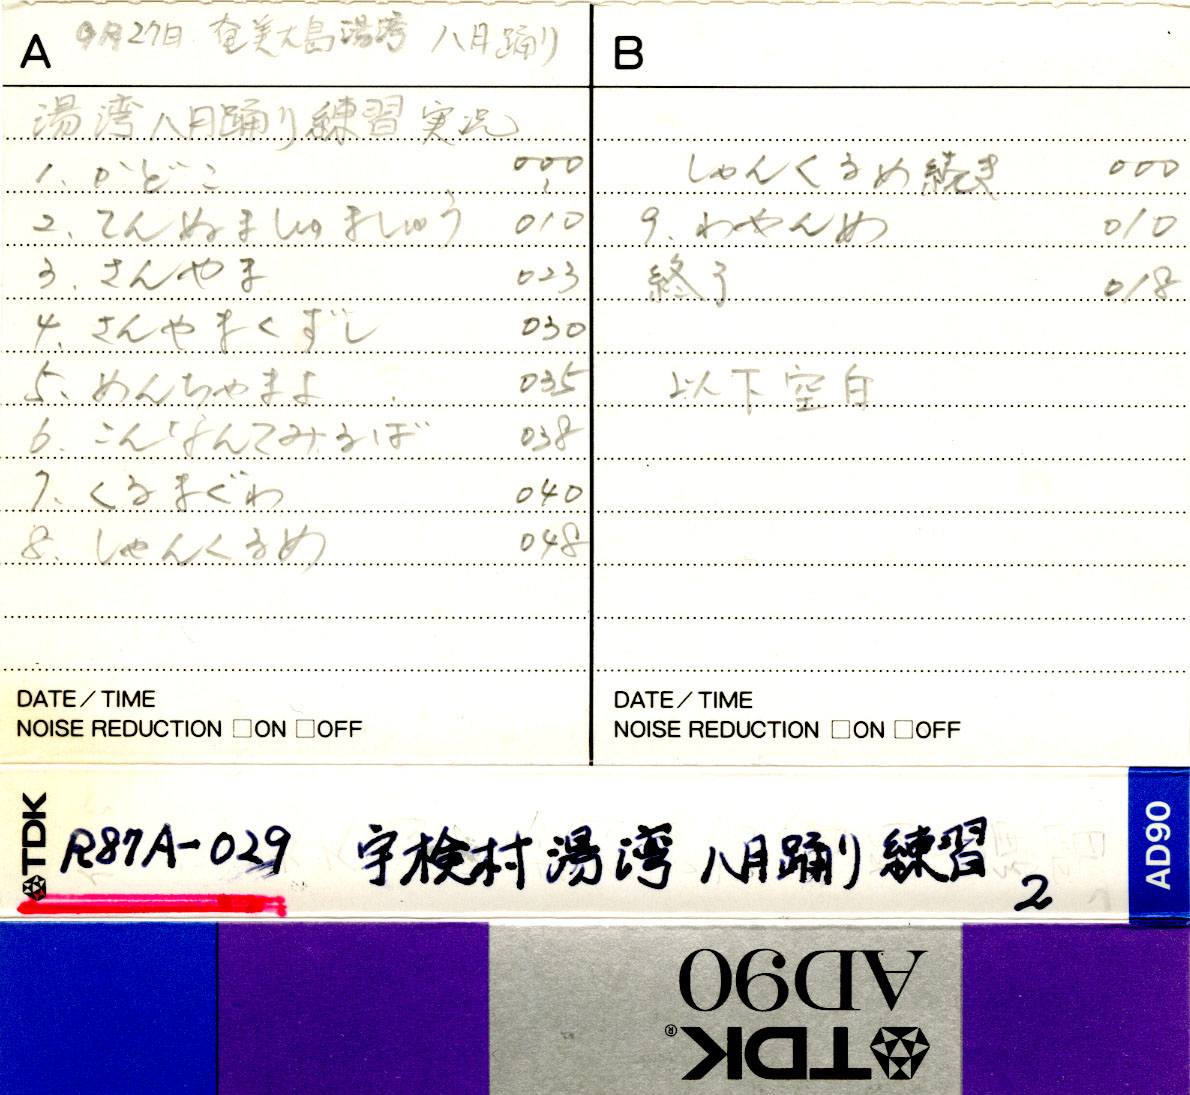 A 9月27日 奄美大島湯湾 八月踊り
湯湾八月踊り練習実況
1. かどこ 000
2. てんぬましゅましゅう 010
3. さんやま 023
4. さんやまくずし 030
5. めんちゃまよ 035
6. こんなんてみるば 038
7. くるまぐわ 040
8. しゃんくるめ 048
DATE/TIME
NOISE REDUCTION □ON □OFF
B
しゃんくるめ続き 000
9. わやんめ 010
終了 018
以下空白
DATE/TIME
NOISE REDUCTION □ON □OFF
TDK R87A-029 宇検村湯湾八月踊り練習 2 AD90
AD90
TDK®